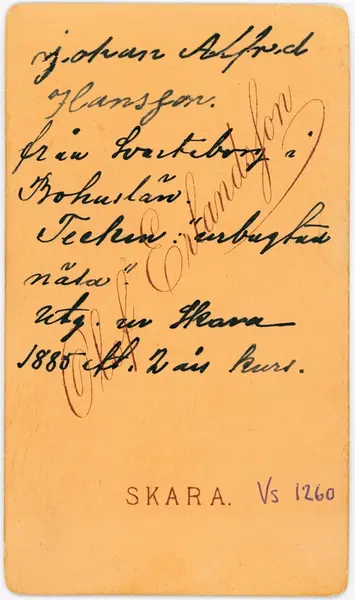 Johan Alfred
Hansson.
från Svarteborg i
Bohuslän.
Tecken: "inbugtad
näsa".
Utg. ur Skara
1885 eft. 2 års kurs.
Olof Erlandsson
SKARA. Vs 1260